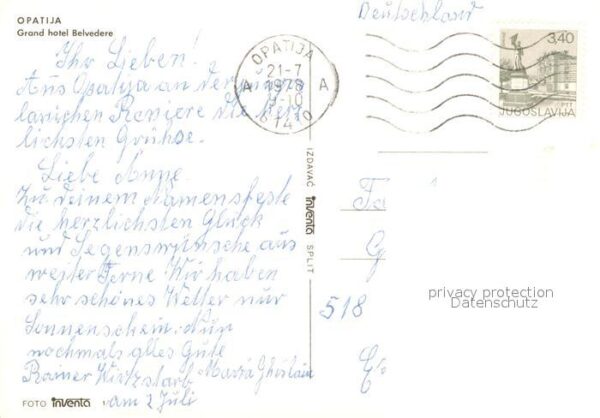 OPATIJA
Grand hotel Belvedere
Deutschland
Ihr Lieben!
Aus Opatija an der
Riviere die herz
lichsten Grühse.
Liebe Anne
Zu deinem Namensfeste
die herzlichsten Glück
und Segenswünsche aus
weiter Ferne Wir haben
sehr schönes Wetter nur
Sonnenschein. Nun
nochmals alles Gute
Rainer Maria
am 2 Juli
FOTO inventa
IZDAVAČ inventa SPLIT
OPATIJA
21-7
1978
9-10
A A
3,40
JUGOSLAVIJA
518
privacy protection
Datenschutz